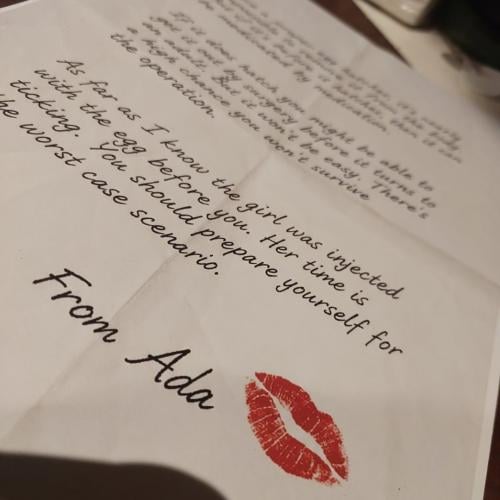 before it hatches then it can
be eradicated by medication.
If it does hatch you might be able to
get it out by surgery before it turns to
an adult. But it won't be easy. There's
a high chance you won't survive
the operation.
As far as I know the girl was injected
with the egg before you. Her time is
ticking. You should prepare yourself for
the worst case scenario.
From Ada